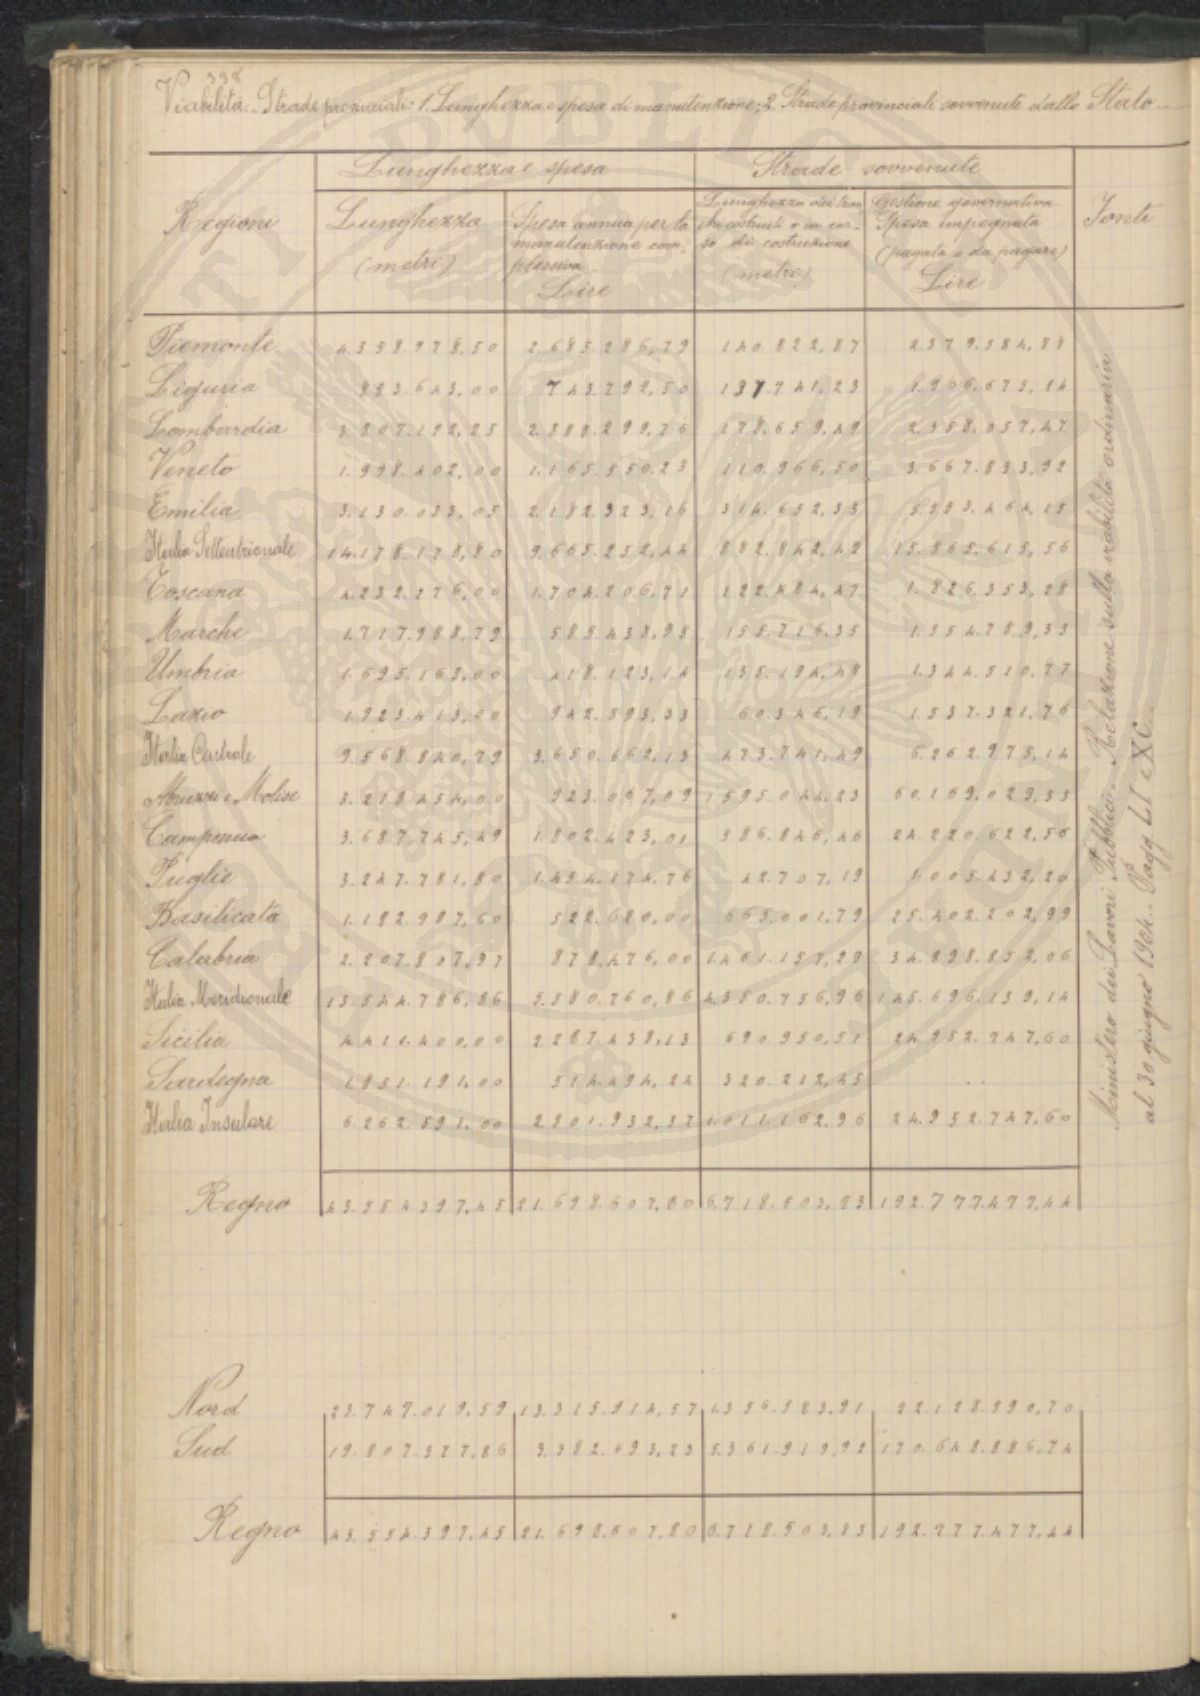 338
Viabilità. Strade provinciali: 1. Lunghezza e spesa di manutenzione; 2. Strade provinciali sovvenute dallo Stato.
Regioni
Lunghezza e spesa
Strade sovvenute
Fonti
Lunghezza (metri)
Spesa annua per la manutenzione complessiva Lire
Lunghezza dei tronchi costruiti o in corso di costruzione (metri)
Gestione governativa Spesa impegnata (pagata o da pagare) Lire
Piemonte 4.358.978,50 2.685.286,79 140.822,87 2.379.584,88
Liguria 883.643,00 743.792,50 137.741,23 1.906.673,14
Lombardia 3.807.192,25 2.388.299,76 178.659,49 2.358.057,47
Veneto 1.998.402,00 1.165.550,23 110.966,50 3.667.833,92
Emilia 3.130.033,05 2.182.323,16 314.652,33 5.553.464,15
Italia Settentrionale 14.178.178,80 9.665.252,44 882.842,42 15.865.615,56
Toscana 4.232.276,00 1.704.206,71 122.484,47 1.826.353,28
Marche 1.717.988,79 585.438,95 155.716,35 1.554.789,33
Umbria 1.695.163,00 418.123,14 135.194,48 1.344.510,77
Lazio 1.923.413,00 942.893,33 60.346,19 1.537.321,76
Italia Centrale 9.568.840,79 3.650.662,13 473.741,49 6.262.975,14
Abruzzi e Molise 3.218.454,00 923.067,09 1.595.044,23 60.169.029,33
Campania 3.687.745,49 1.802.423,01 586.846,46 24.220.622,56
Puglie 3.247.781,80 1.454.174,76 42.707,19 1.005.432,20
Basilicata 1.182.997,60 522.620,00 665.001,79 25.402.202,99
Calabria 2.207.807,97 878.476,00 1.461.157,29 34.898.852,06
Italia Meridionale 13.544.786,86 5.580.760,86 4.350.756,96 145.696.139,14
Sicilia 4.411.400,00 2.287.438,13 690.950,51 24.952.747,60
Sardegna 1.851.191,00 514.494,24 320.212,45 . .
Italia Insulare 6.262.591,00 2.801.932,37 1.011.162,96 24.952.747,60
Regno 43.554.397,45 21.698.607,80 6.718.503,83 192.777.477,44
Nord 23.747.019,59 13.315.914,57 1.356.583,91 22.128.590,70
Sud 19.807.377,86 8.382.693,23 5.361.919,92 170.648.886,74
Regno 43.554.397,45 21.698.607,80 6.718.503,83 192.777.477,44
Ministero dei Lavori Pubblici. Relazione sulla viabilità ordinaria
al 30 giugno 1904.